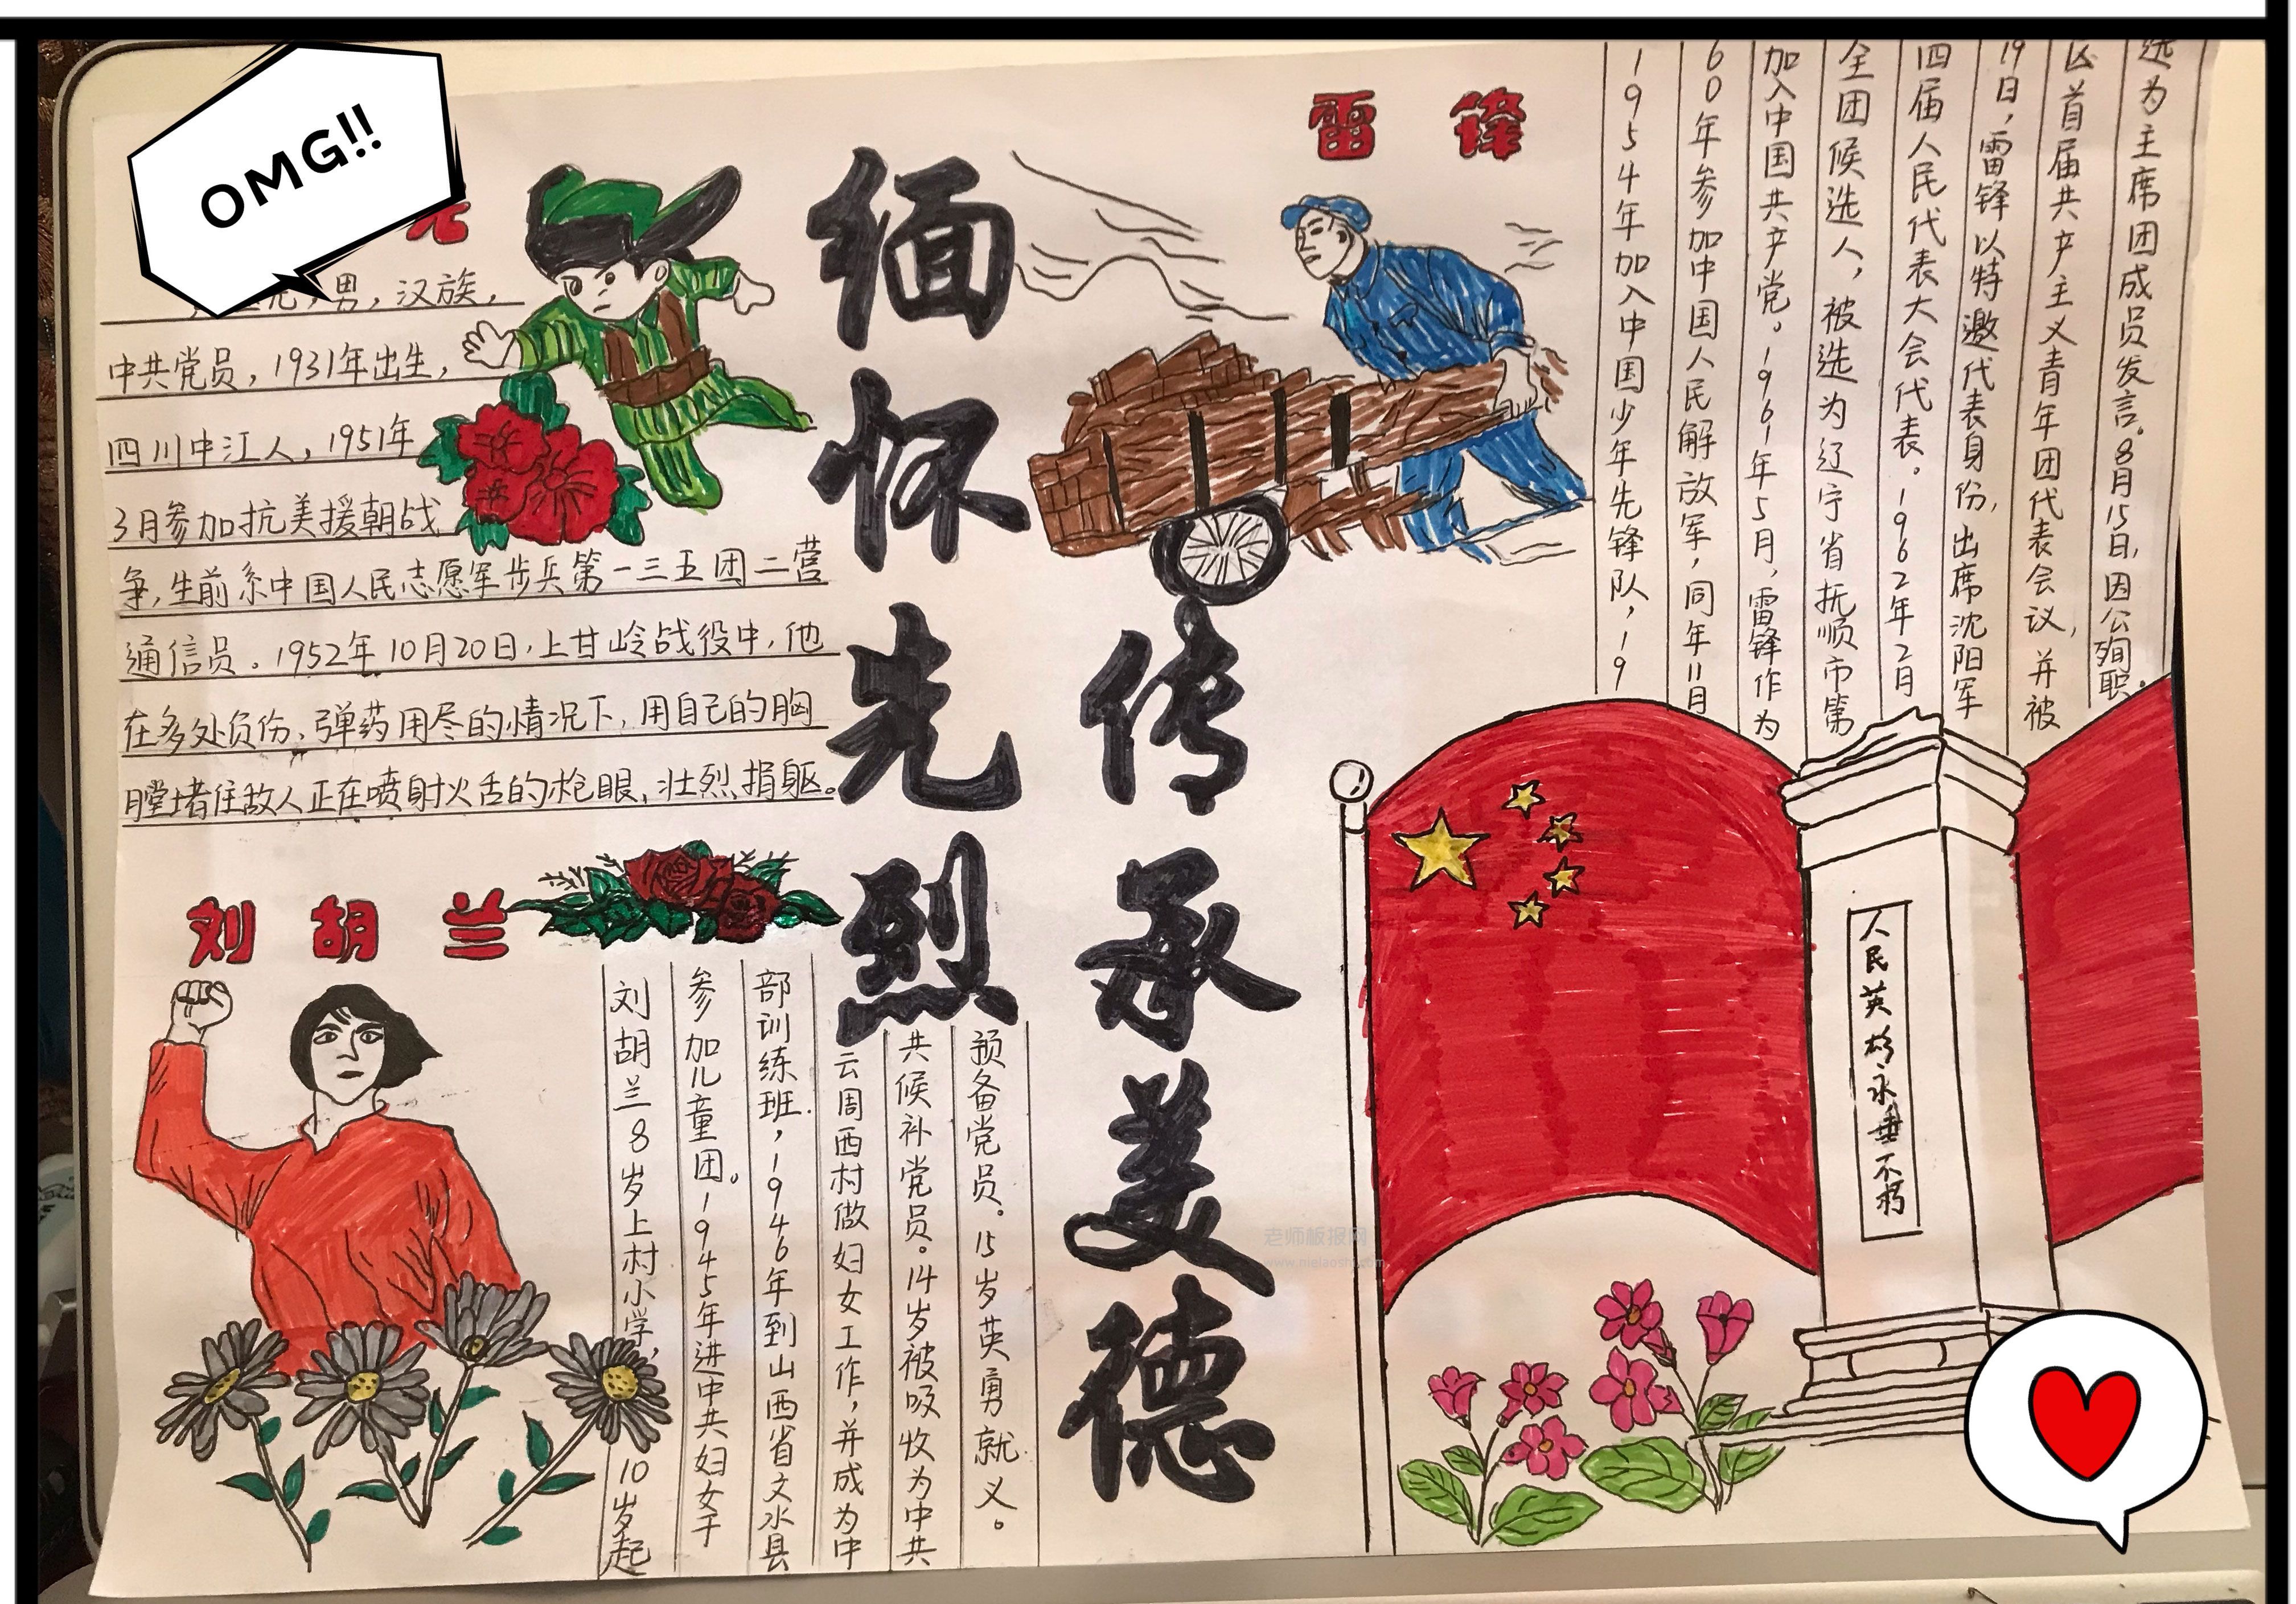 OMG!!
光
光，男，汉族，
中共党员，1931年出生，
四川中江人，1951年
3月参加抗美援朝战
争，生前系中国人民志愿军步兵第一三五团二营
通信员。1952年10月20日，上甘岭战役中，他
在多处负伤，弹药用尽的情况下，用自己的胸
膛堵住敌人正在喷射火舌的枪眼，壮烈捐躯。
缅怀先烈
传承美德
雷锋
1954年加入中国少年先锋队，19
60年参加中国人民解放军，同年11月
加入中国共产党。1961年5月，雷锋作为
全团候选人，被选为辽宁省抚顺市第
四届人民代表大会代表。1962年2月
19日，雷锋以特邀代表身份，出席沈阳军
区首届共产主义青年团代表会议，并被
选为主席团成员发言。8月15日，因公殉职。
刘胡兰
刘胡兰8岁上村小学，10岁起
参加儿童团。1945年进中共妇女干
部训练班，1946年到山西省文水县
云周西村做妇女工作，并成为中
共候补党员。14岁被吸收为中共
预备党员。15岁英勇就义。
人民英雄永垂不朽
老师板报网